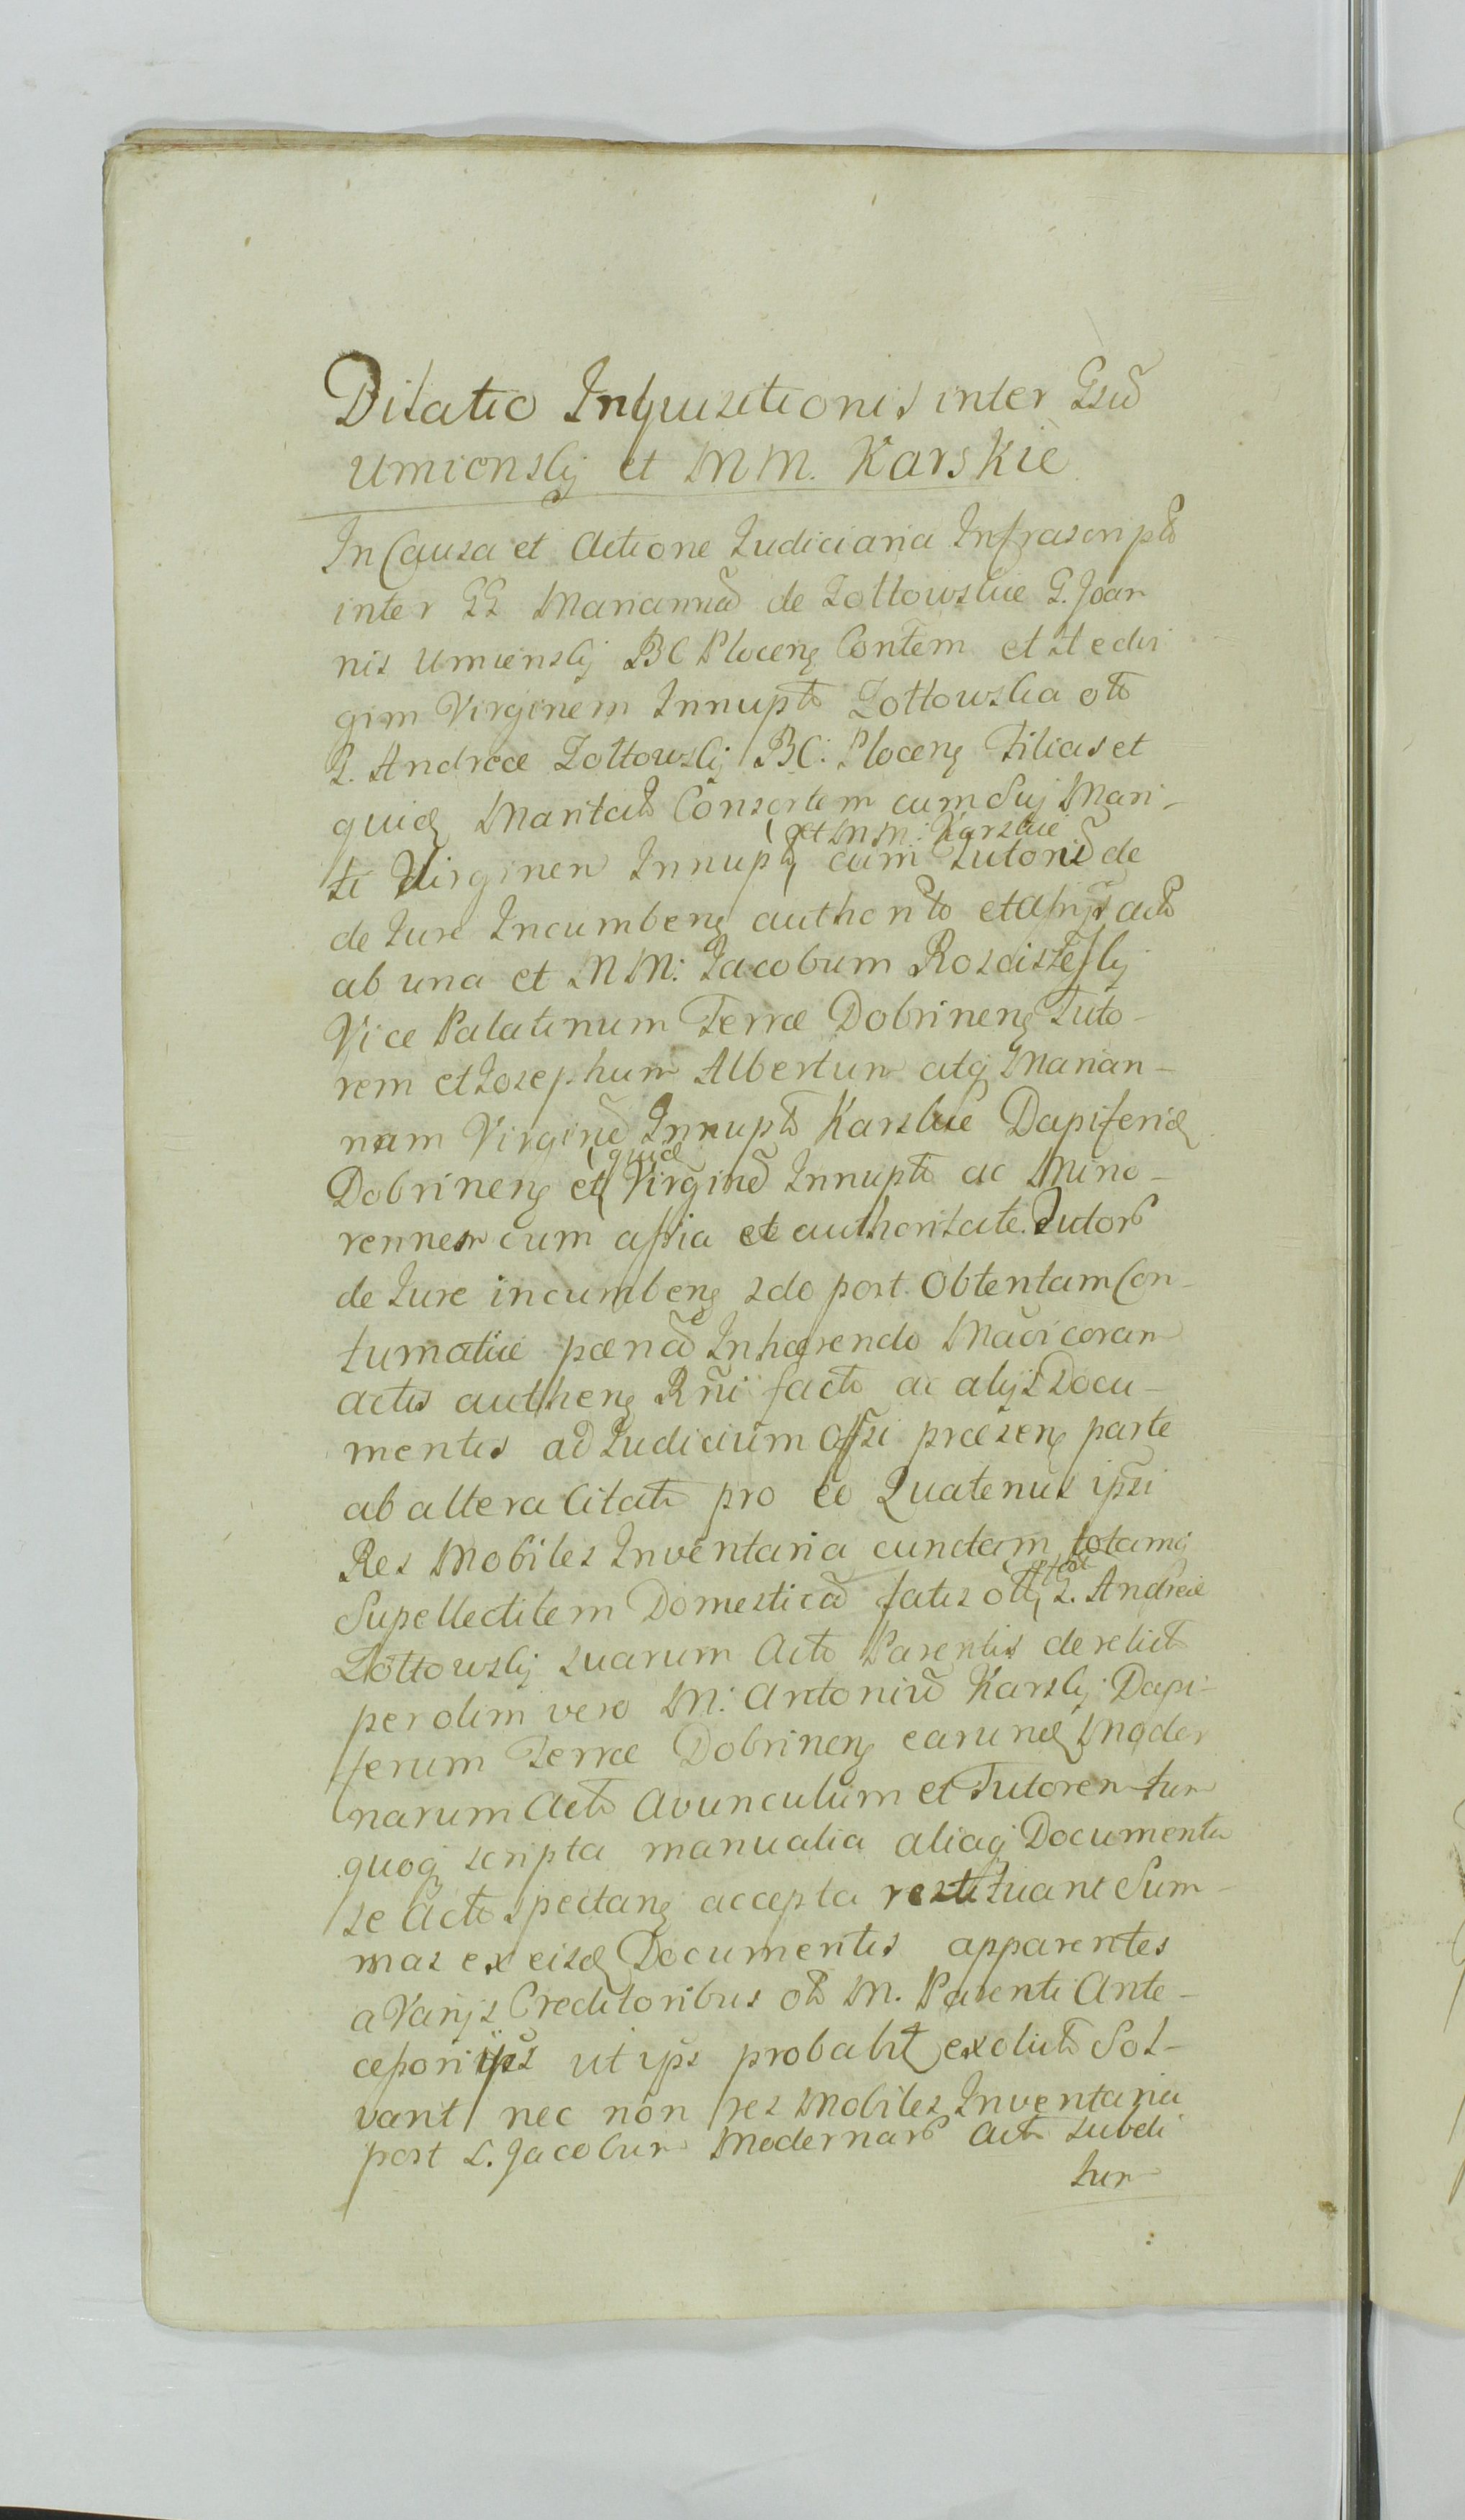 Dilatio Inquisitionis inter Gsū
Umienskij et MM. Karskie
In Causa et Actione Iudiciaria Infrascripto
inter GG Mariannā de Zołtowskie G. Joan
nis Umienskij BC Ploceng Contem et Hedvi
gim Virginem Innupto Zołtowska oto
G. Andreæ Zołtowskij BC: Ploceng Filias et
quid Maritato Consortem cum Suj Mari-
(et MM: Karskie
ti Virginen Innuptj cum Tutoris de
de Iure Incumbeng authorito et assijs acto
ab una et MM: Jacobum Rosciszeskij
Vice Palatinum Terræ Dobrineng Tuto-
rem et Josephum Albertum atq Marian-
nam Virginē Innupto Karskie Dapiferid
(quid
Dobrineng et Virginē Innupto ac Mino-
rennem cum assia et authoritate Tutor
de Iure incumbeng sdo post obtentam Con-
tumatiæ pœnā Inhærendo Mavi coram
actis autheng Rni facto ac alijs Docu-
mentis ad Iudicium Assi præseng parte
ab altera Citato pro eo Quatenus ipsi
Res Mobiles Inventaria cundam totamq
Supellectilem Domesticā fatis oltj G. Andreæ
Zołtowskij suarum Acto Parentis derelicto
per olim vero M: Antoniū Karskij Dapi-
ferum Terræ Dobrineng earund Moder
narum Acto Avunculum et Tutorem tum
quoq scripta manualia aliaq Documenta
se Acto spectang accepta restituant Sum-
mas ex eisd Documentis apparentes
a Varijs Creditoribus oto M. Parenti Ante-
cessori ut ips probabit exoluto Sol-
vant nec non res Mobiles Inventaria
post G. Jacobum Modernar Acto Subdi
tum